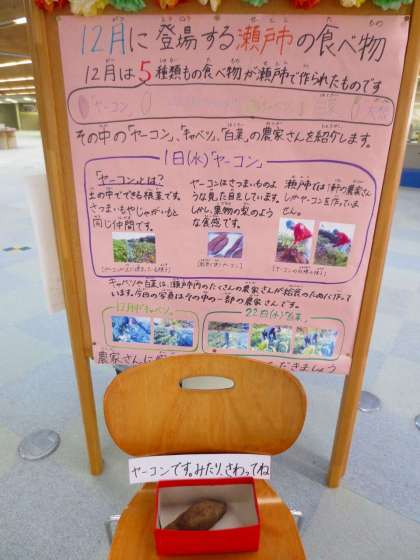 12月に登場する瀬戸市の食べ物
12月は5種類もの食べ物が瀬戸市で作られたものです
ヤーコン
白菜
大根
その中の「ヤーコン」、「キャベツ」、「白菜」の農家さんを紹介します。
1日(水)「ヤーコン」
「ヤーコン」とは?
土の中でできる根菜です。
さつまいもやじゃがいもと
同じ仲間です。
ヤーコンはさつまいものよう
な見た目をしています。
しかし、果物の梨のよう
な食感です。
瀬戸では1軒の農家さん
しかヤーコンを作っていま
せん。
キャベツや白菜は、瀬戸市内のたくさんの農家さんが給食のために作って
います。今回の写真はその中の一部の農家さんです。
22日(水)「白菜」
農家さんに
だきましょう
ヤーコンです。みたり、さわってね